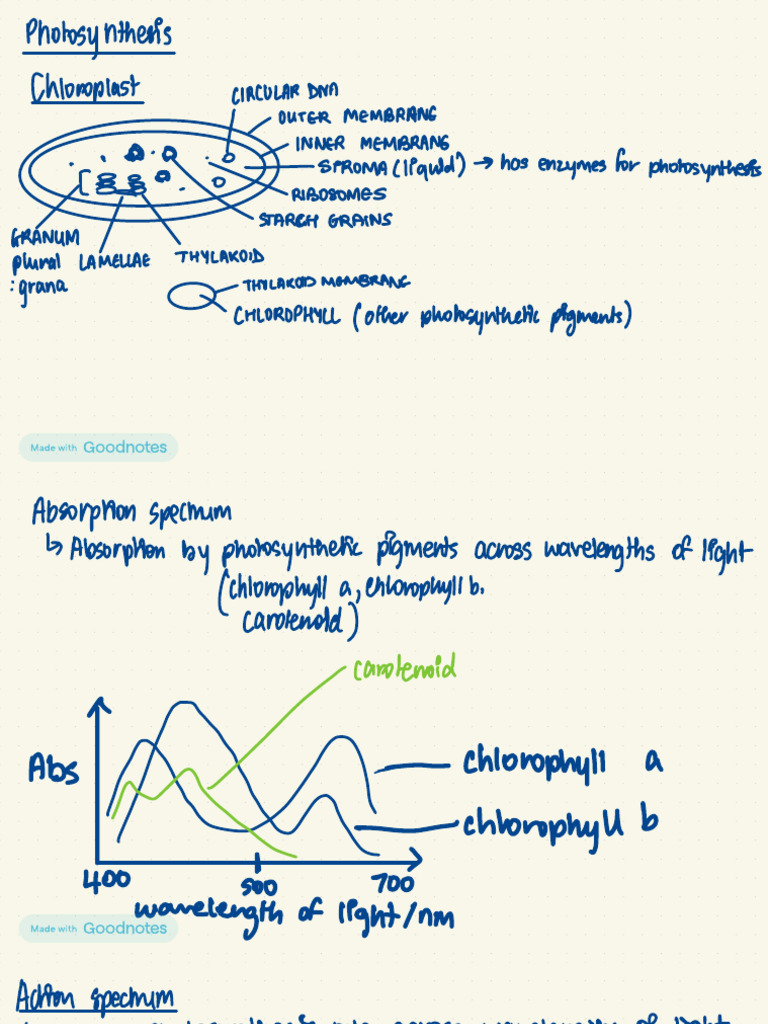 Photosynthesis
Chloroplast
CIRCULAR DNA
OUTER MEMBRANE
INNER MEMBRANE
STROMA (liquid) → has enzymes for photosynthesis
RIBOSOMES
STARCH GRAINS
GRANUM
plural
: grana
LAMELLAE
THYLAKOID
THYLAKOID MEMBRANE
CHLOROPHYLL (other photosynthetic pigments)
Made with Goodnotes
Absorption spectrum
↳ Absorption by photosynthetic pigments across wavelengths of light
(chlorophyll a, chlorophyll b.
carotenoid)
carotenoid
Abs
chlorophyll a
chlorophyll b
400
500
700
wavelength of light/nm
Made with Goodnotes
Action spectrum
across wavelengths of light